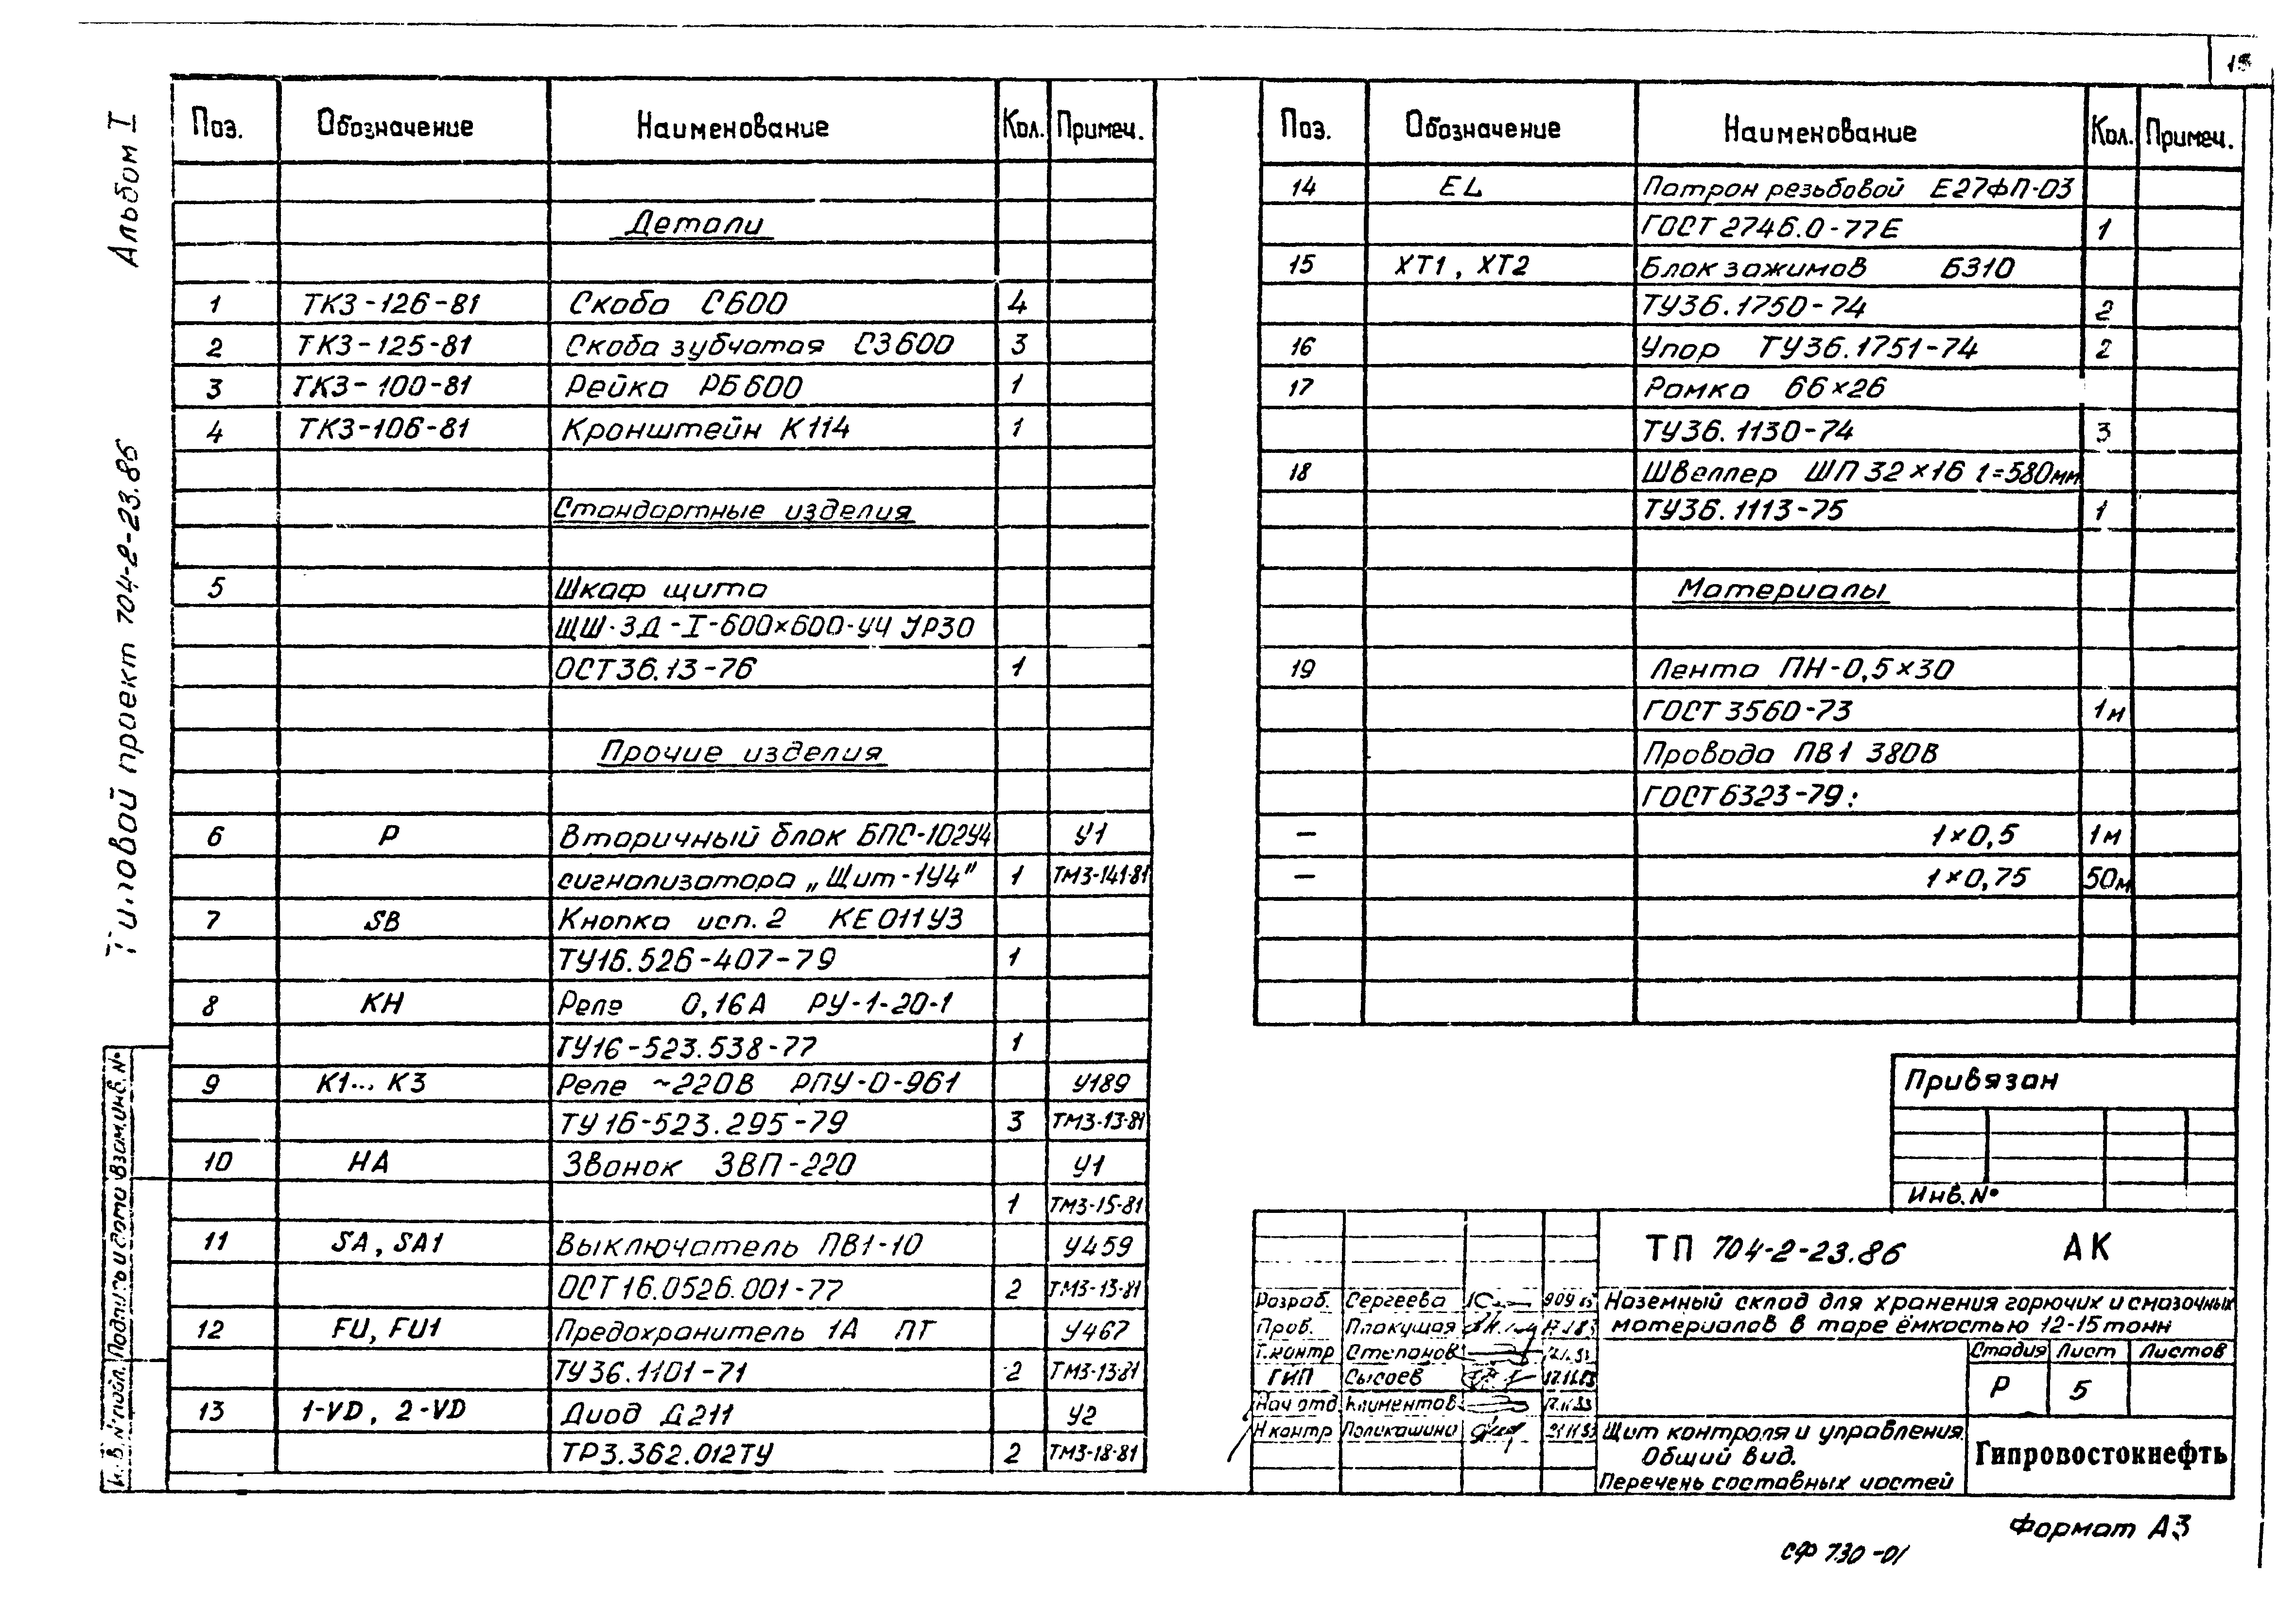 Альбом I
Типовой проект 704-2-23.86
Поз. Обозначение Наименование Кол. Примеч.
Детали
1 ТК3-126-81 Скоба С600 4
2 ТК3-125-81 Скоба зубчатая СЗ600 3
3 ТК3-100-81 Рейка РБ600 1
4 ТК3-106-81 Кронштейн К114 1
Стандартные изделия
5 Шкаф щита
ЩШ-ЗД-I-600×600-У4 УР30
ОСТ36.13-76 1
Прочие изделия
6 Р Вторичный блок БПС-102У4 У1
сигнализатора „Щит-1У4" 1 ТМ3-141-81
7 SB Кнопка исп.2 КЕ011У3
ТУ16.526-407-79 1
8 КН Реле 0,16А РУ-1-20-1
ТУ16-523.538-77 1
9 К1... К3 Реле ~220В РПУ-0-961 У189
ТУ16-523.295-79 3 ТМ3-13-81
10 НА Звонок ЗВП-220 У1
1 ТМ3-15-81
11 SA, SA1 Выключатель ПВ1-10 У459
ОСТ16.0526.001-77 2 ТМ3-13-81
12 FU, FU1 Предохранитель 1А ПТ У467
ТУ36.1101-71 2 ТМ3-13-81
13 1-VD, 2-VD Диод Д211 У2
ТР3.362.012ТУ 2 ТМ3-18-81
Поз. Обозначение Наименование Кол. Примеч.
14 EL Патрон резьбовой Е27ФП-03
ГОСТ 2746.0-77Е 1
15 ХТ1, ХТ2 Блок зажимов Б310
ТУ36.1750-74 2
16 Упор ТУ36.1751-74 2
17 Рамка 66×26
ТУ36.1130-74 3
18 Швеллер ШП 32×16 l=580мм
ТУ36.1113-75 1
Материалы
19 Лента ПН-0,5×30
ГОСТ 3560-73 1м
Провода ПВ1 380В
ГОСТ6323-79:
— 1×0,5 1м
— 1×0,75 50м
Привязан
Инв.№
ТП 704-2-23.86 АК
Разраб. Сергеева
Проб. Плакущая
Т.контр Степанов
ГИП Сысоев
Нач отд Климентов
Н контр Поликашина
Наземный склад для хранения горючих и смазочных
материалов в таре ёмкостью 12-15 тонн
Стадия Лист Листов
Р 5
Щит контроля и управления.
Общий вид.
Перечень составных частей
Гипровостокнефть
Взам.инв.№
Подпись и дата
Инв.№ подл.
Формат А3
СФ 730-01